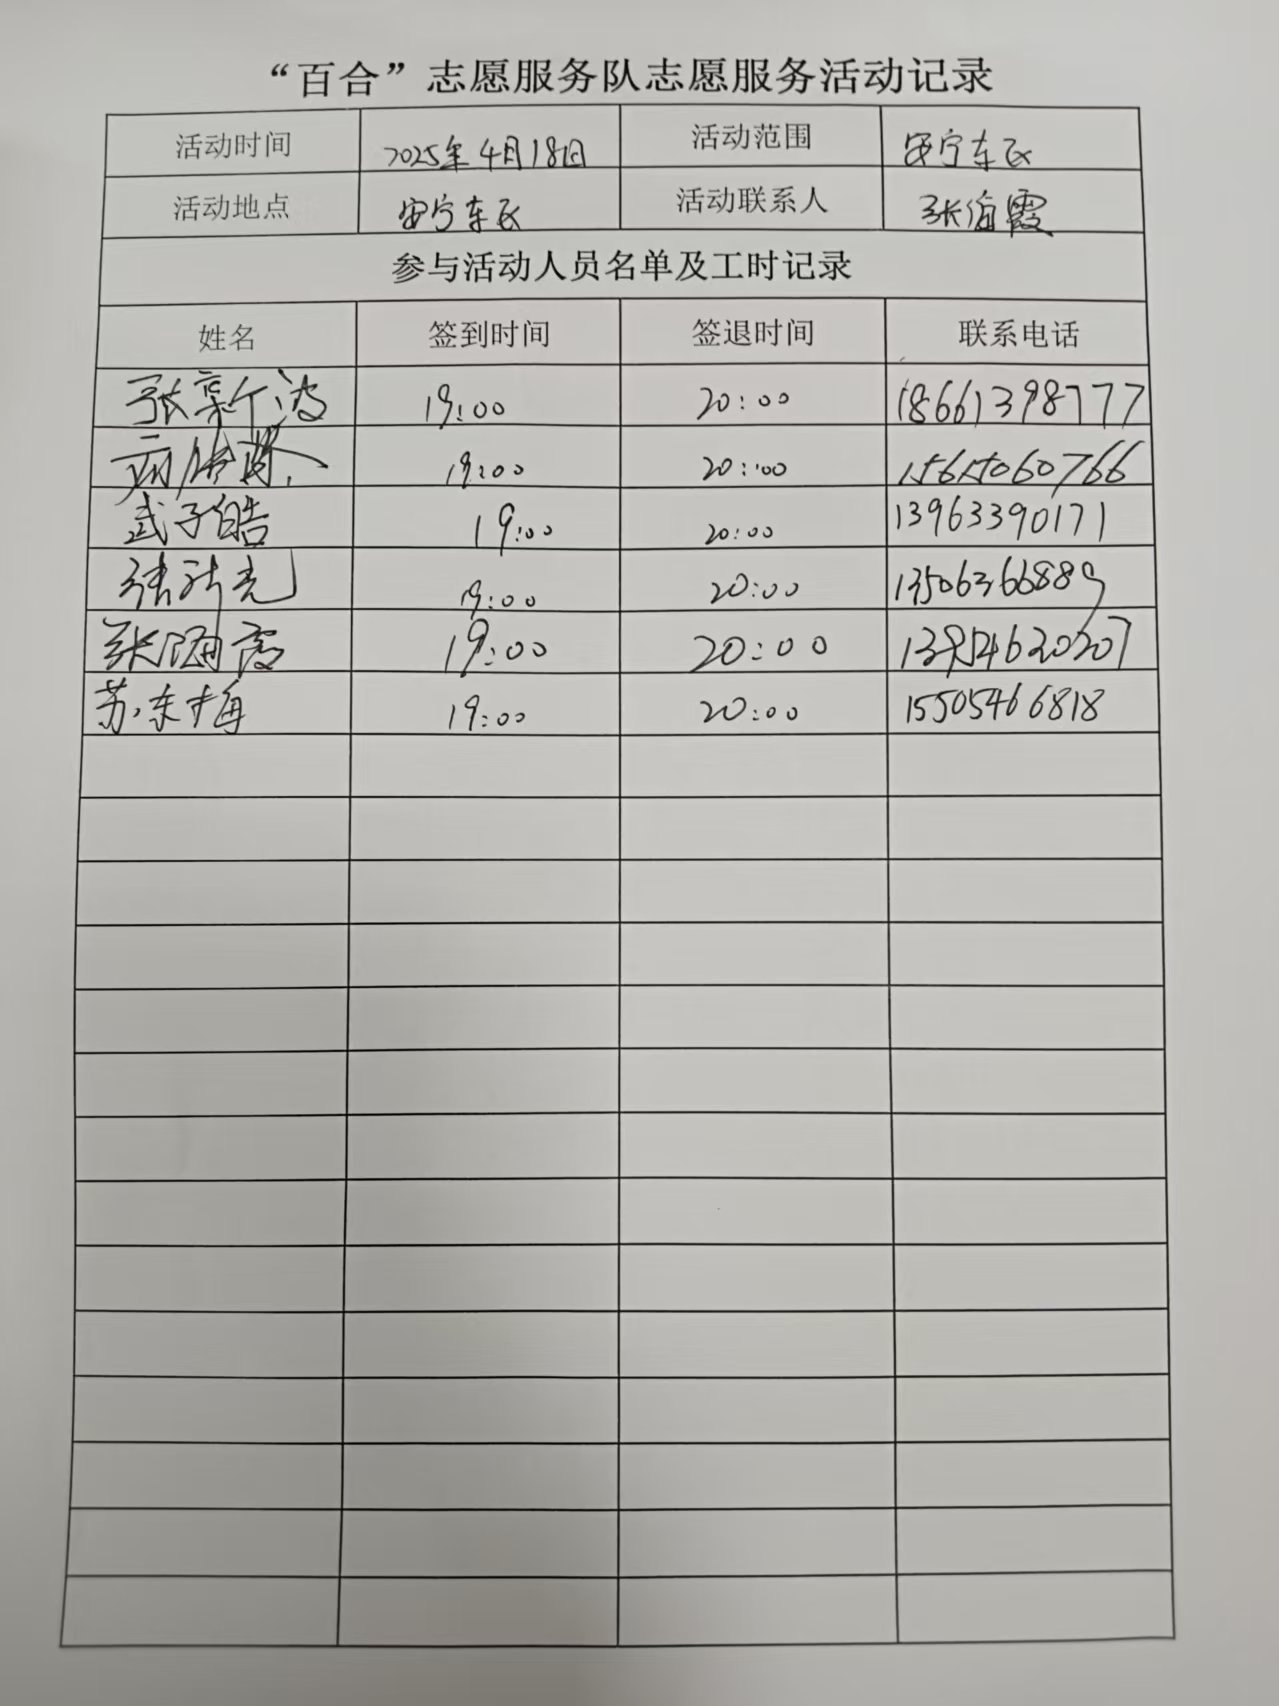 “百合”志愿服务队志愿服务活动记录
活动时间 2025年4月18日 活动范围 安宁东区
活动地点 安宁东区 活动联系人 张海霞
参与活动人员名单及工时记录
姓名 签到时间 签退时间 联系电话
张新波 19:00 20:00 18661398777
19:00 20:00 15615060766
武子皓 19:00 20:00 13963390171
19:00 20:00 13506366889
张海霞 19:00 20:00 13954620207
苏东梅 19:00 20:00 15505466818